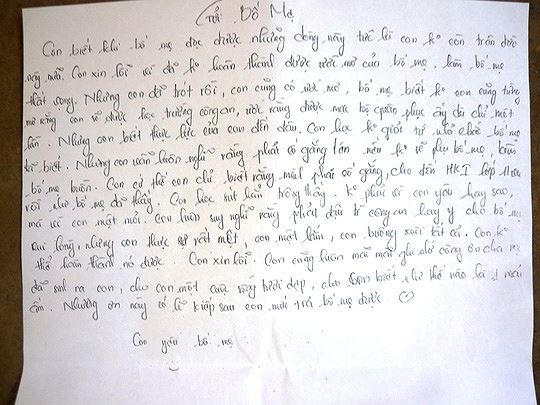 Gửi Bố Mẹ
Con biết khi bố mẹ đọc được những dòng này tức là con ko còn trên đời
này nữa. Con xin lỗi vì đã ko hoàn thành được ước mơ của bố mẹ, làm bố mẹ
thất vọng. Nhưng con đã trót rồi, con cũng có ước mơ, bố mẹ biết ko con cũng từng
mơ rằng con sẽ được học trường công an, ước rằng được mặc bộ quân phục ấy dù chỉ một
lần. Nhưng con biết thực lực của con đến đâu. Con học ko giỏi từ nhỏ chắc bố mẹ
đã biết. Nhưng con luôn luôn nghĩ rằng phải cố gắng lên nếu ko sẽ phụ bố mẹ, làm
bố mẹ buồn. Con có thể con chỉ biết rằng mình phải cố gắng, cho đến HKI lớp
rồi như bố mẹ đã thấy. Con học sút hẳn trông thấy. K phải vì con yêu hay sao,
mà vì con mệt mỏi. Con luôn suy nghĩ rằng phải đậu trg công an hay y cho bố mẹ
vui lòng, nhưng con thực sự rất mệt, con mệt lắm, con buông xuôi tất cả. Con k
thể hoàn thành nó được. Con xin lỗi. Con cũng luôn mãi mãi ghi nhớ công ơn cha mẹ
đã sinh ra con, cho con một cuộc sống tươi đẹp, cho con biết như thế nào là 1 mái
ấm. Nhưng ơn này có lẽ kiếp sau con mới trả bố mẹ được ♡
Con yêu bố mẹ